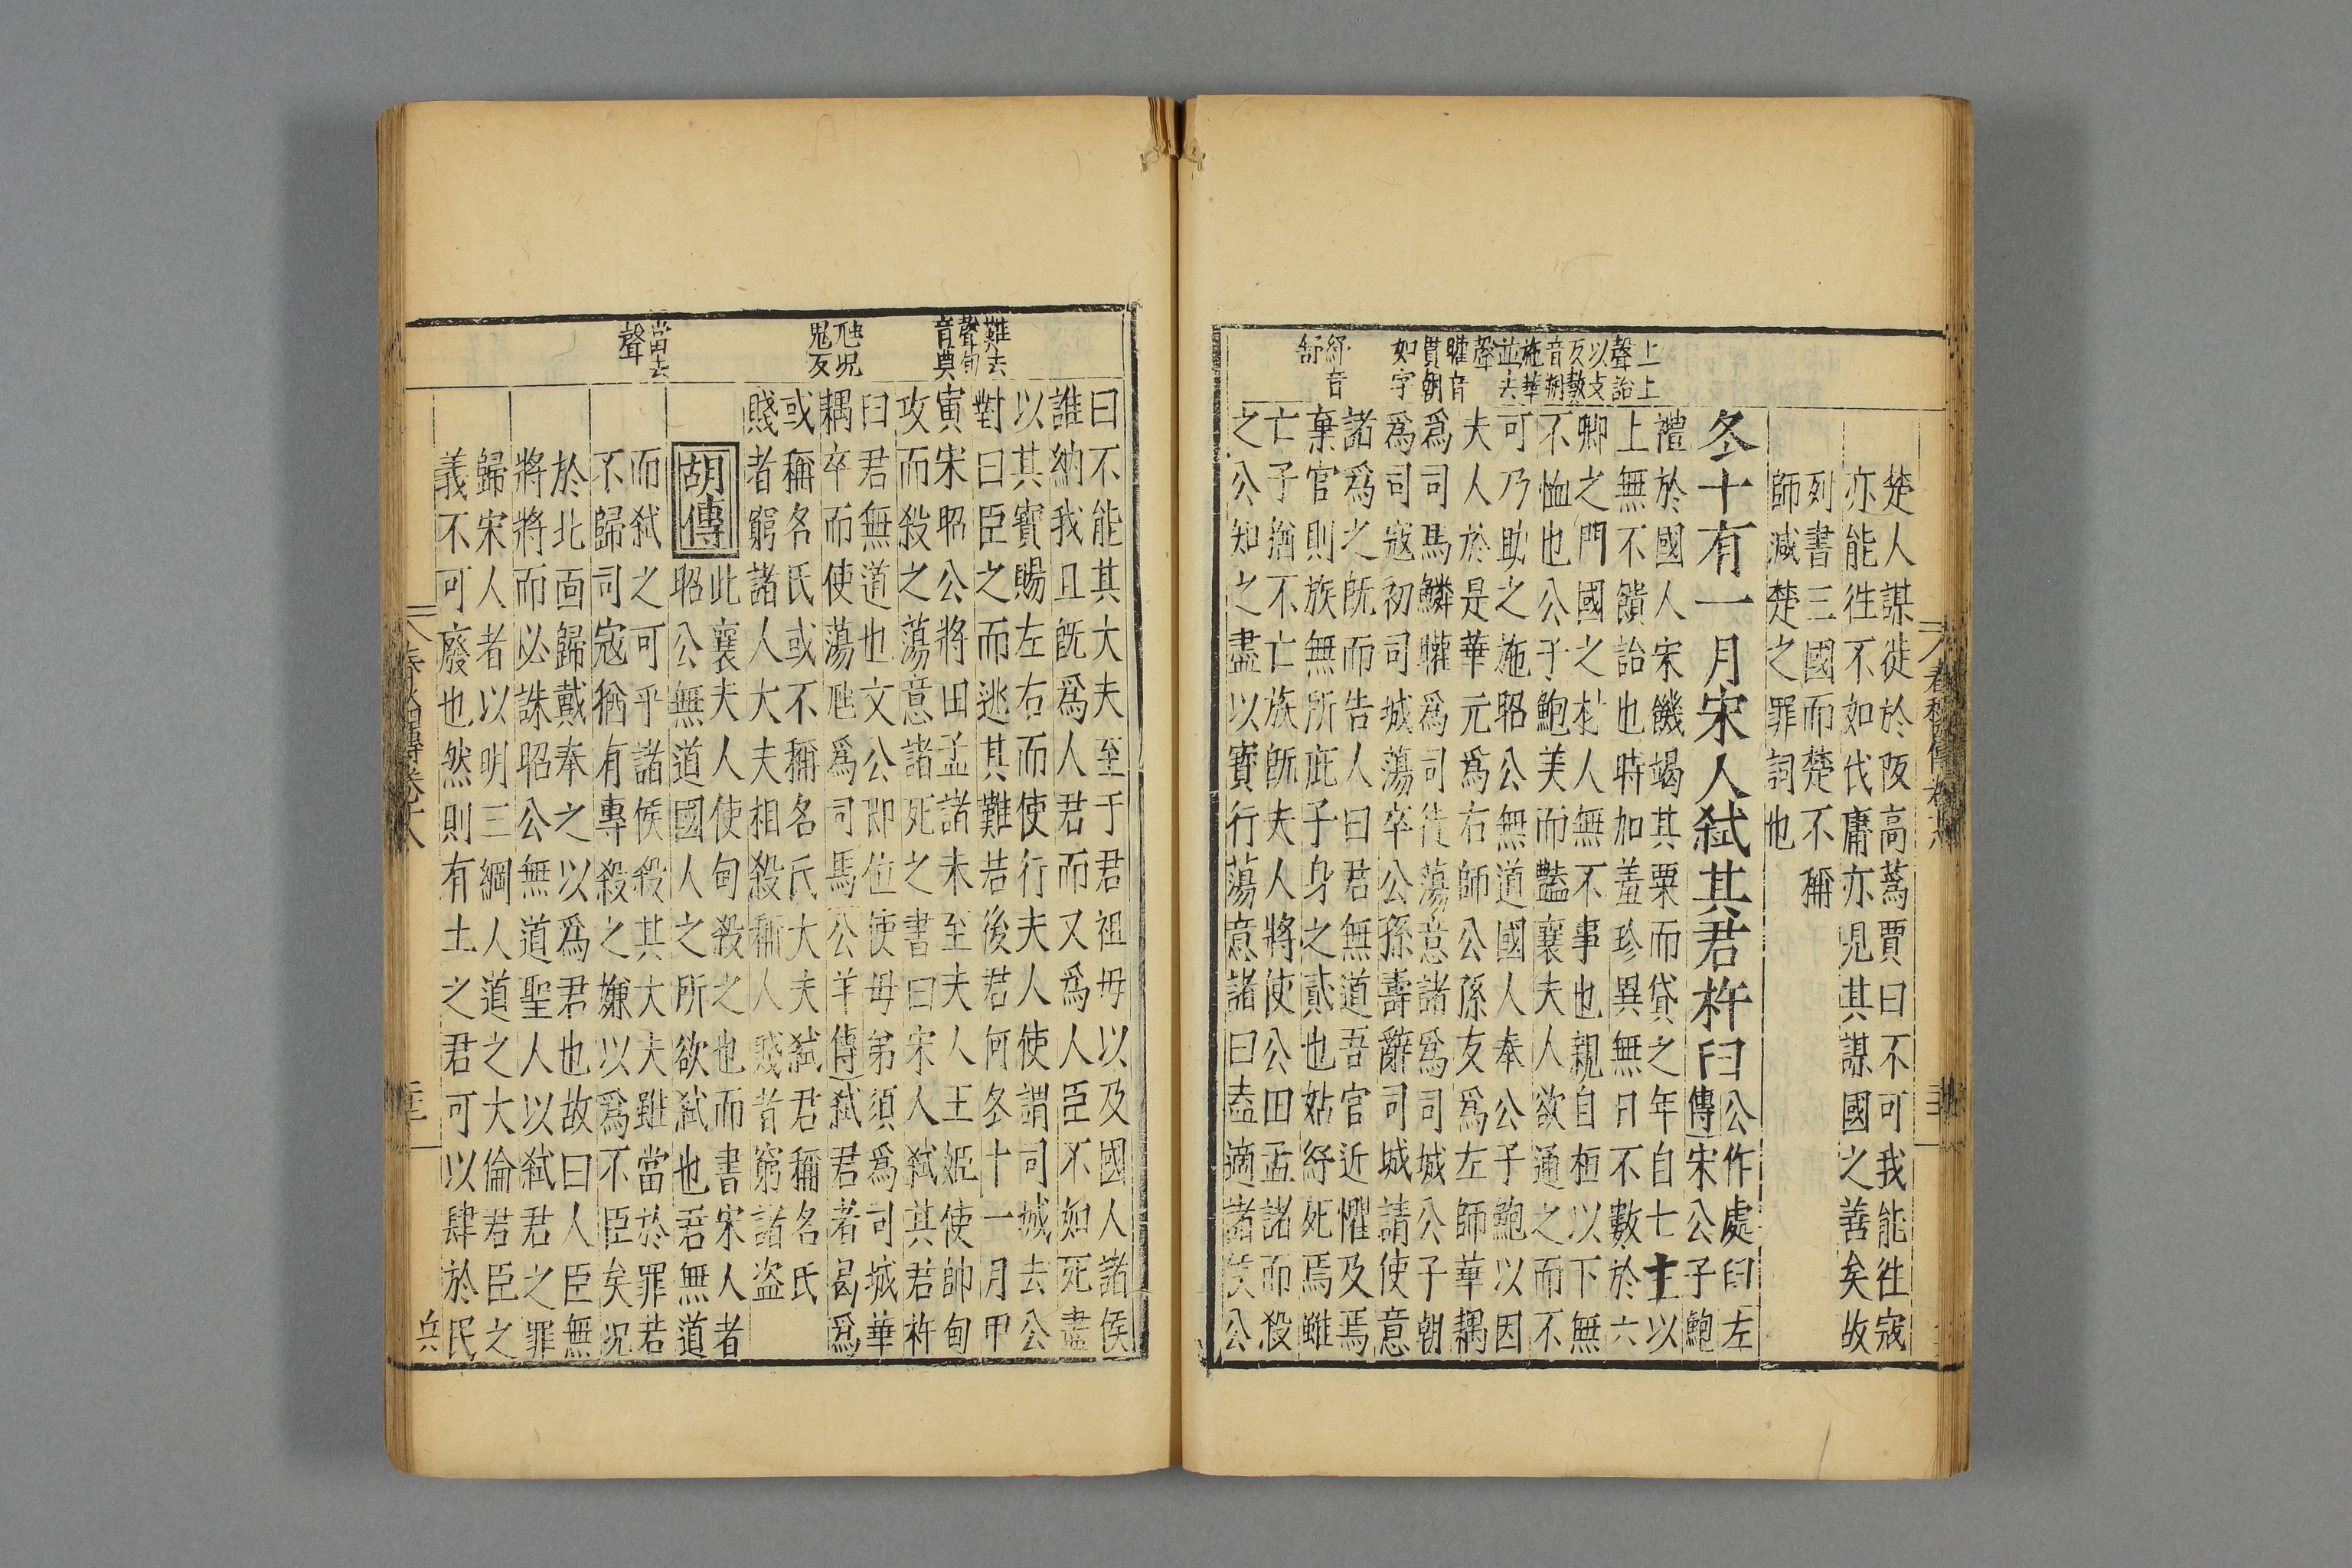 上上
聲詒
以支
反數
音朔
施華
並去
聲
鱹音
貫朝
如字
紓音
舒
楚人謀徙於阪高蒍賈曰不可我能往寇
亦能往不如伐庸亦見其謀國之善矣故
列書三國而楚不稱
師滅楚之罪詞也
冬十有一月宋人弒其君杵臼
公作處臼左
傳宋公子鮑
禮於國人宋饑竭其粟而貸之年自七十以
上無不饋詒也時加羞珍異無日不數於六
卿之門國之材人無不事也親自桓以下無
不恤也公子鮑美而豔襄夫人欲通之而不
可乃助之施昭公無道國人奉公子鮑以因
夫人於是華元爲右師公孫友爲左師華耦
爲司馬鱗鱹爲司徒蕩意諸爲司城公子朝
爲司寇初司城蕩卒公孫壽辭司城請使意
諸爲之旣而告人曰君無道吾官近懼及焉
棄官則族無所庇子身之貳也姑紓死焉雖
亡子猶不亡族旣夫人將使公田孟諸而殺
之公知之盡以寶行蕩意諸曰盍適諸侯公
難去
聲甸
音奠
虺況
鬼反
當去
聲
曰不能其大夫至于君祖母以及國人諸侯
誰納我且旣爲人君而又爲人臣不如死盡
以其寶賜左右而使行夫人使謂司城去公
對曰臣之而逃其難若後君何冬十一月甲
寅宋昭公將田孟諸未至夫人王姬使帥甸
攻而殺之蕩意諸死之書曰宋人弒其君杵
臼君無道也文公卽位使母弟須爲司城華
耦卒而使蕩虺爲司馬公羊傳弒君者曷爲
或稱名氏或不稱名氏大夫弒君稱名氏
賤者窮諸人大夫相殺稱人賤者窮諸盜
胡傳
此襄夫人使甸殺之也而書宋人者
昭公無道國人之所欲弒也君無道
而弒之可乎諸侯殺其大夫雖當於罪若
不歸司寇猶有專殺之嫌以爲不臣矣況
於北面歸戴奉之以爲君也故曰人臣無
將將而必誅昭公無道聖人以弒君之罪
歸宋人者以明三綱人道之大倫君臣之
義不可廢也然則有土之君可以肆於民